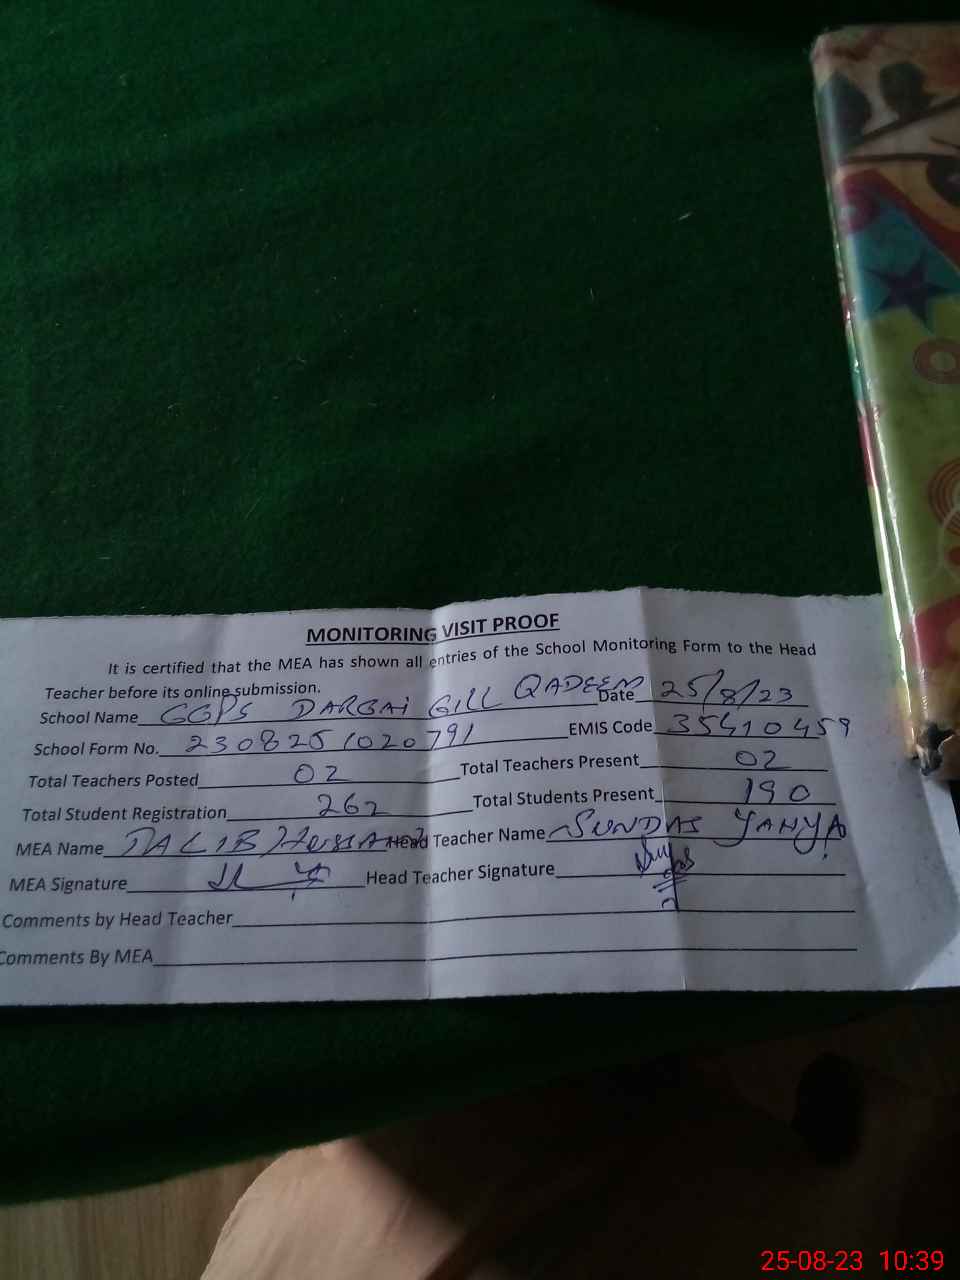 MONITORING VISIT PROOF
It is certified that the MEA has shown all entries of the School Monitoring Form to the Head
Teacher before its online submission.
School Name GGPS DARGAI GILL QADEEM Date 25/8/23
School Form No. 2308251020791 EMIS Code 35410459
Total Teachers Posted 02 Total Teachers Present 02
Total Student Registration 262 Total Students Present 190
MEA Name TALIB Head Teacher Name SUNDAS YAHYA
MEA Signature Head Teacher Signature
Comments by Head Teacher
Comments By MEA
25-08-23 10:39